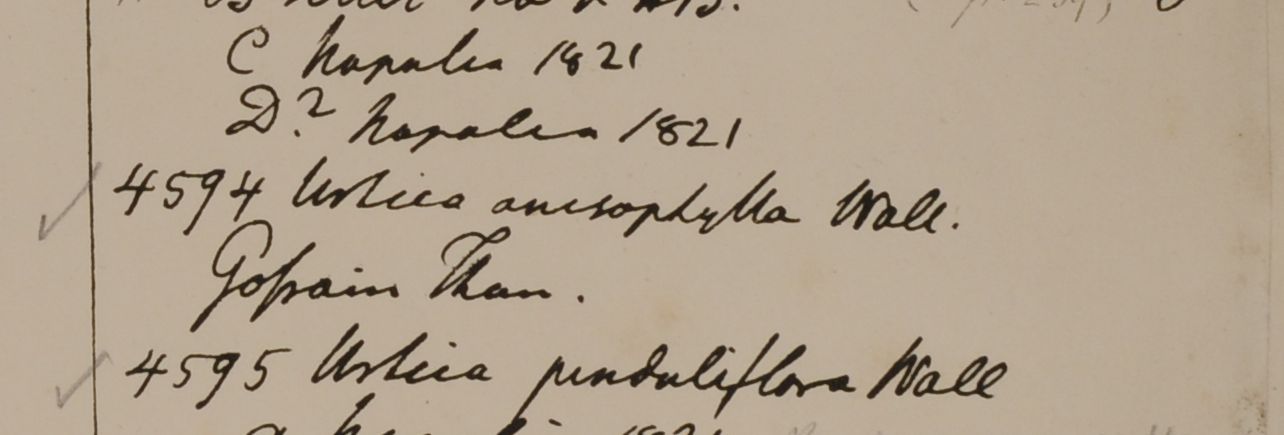 C Napalia 1821
D? Napalia 1821
4594 Urtica anisophylla Wall.
Gossain Than.
4595 Urtica penduliflora Wall
1821